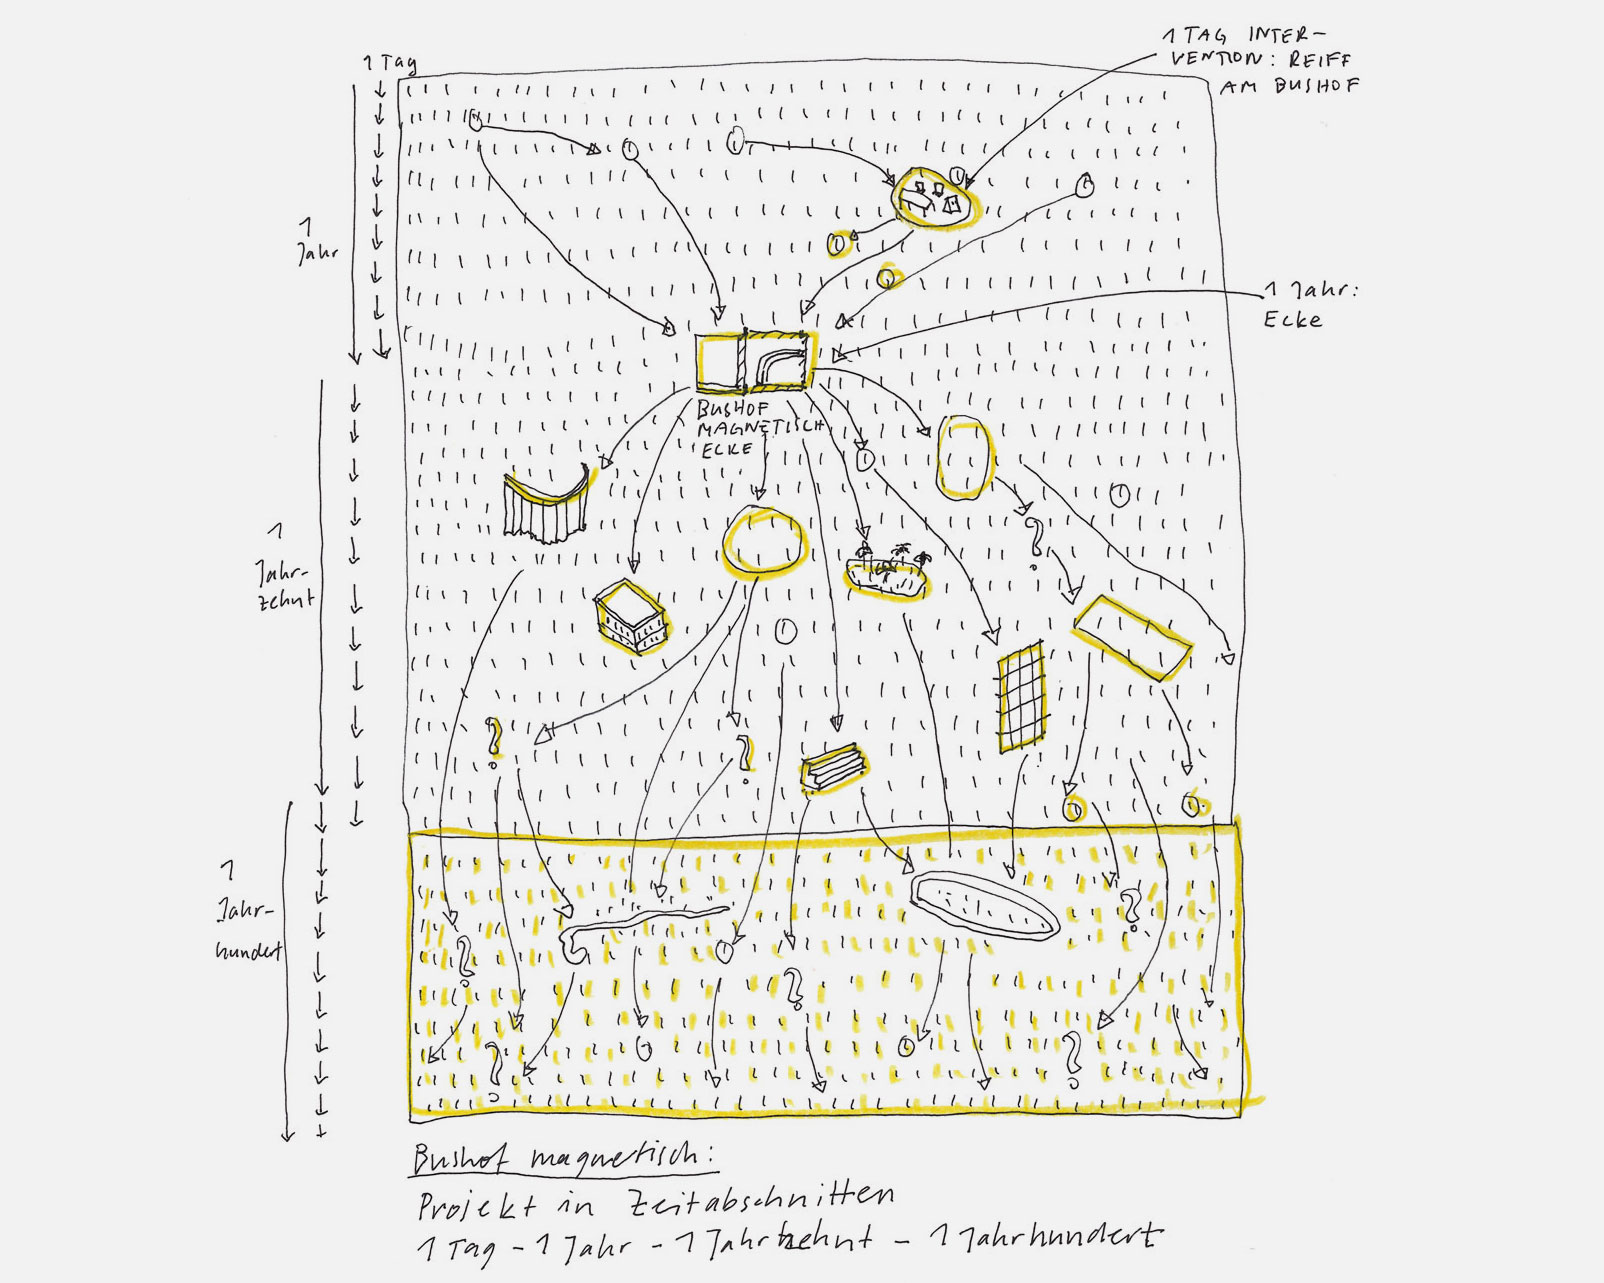 1 Tag
1 TAG INTER-
VENTION: REIFF
AM BUSHOF
1
Jahr
1 Jahr:
Ecke
BUSHOF
MAGNETISCH
ECKE
1
Jahr-
zehnt
1
Jahr-
hundert
Bushof magnetisch:
Projekt in Zeitabschnitten
1 Tag - 1 Jahr - 1 Jahrzehnt - 1 Jahrhundert